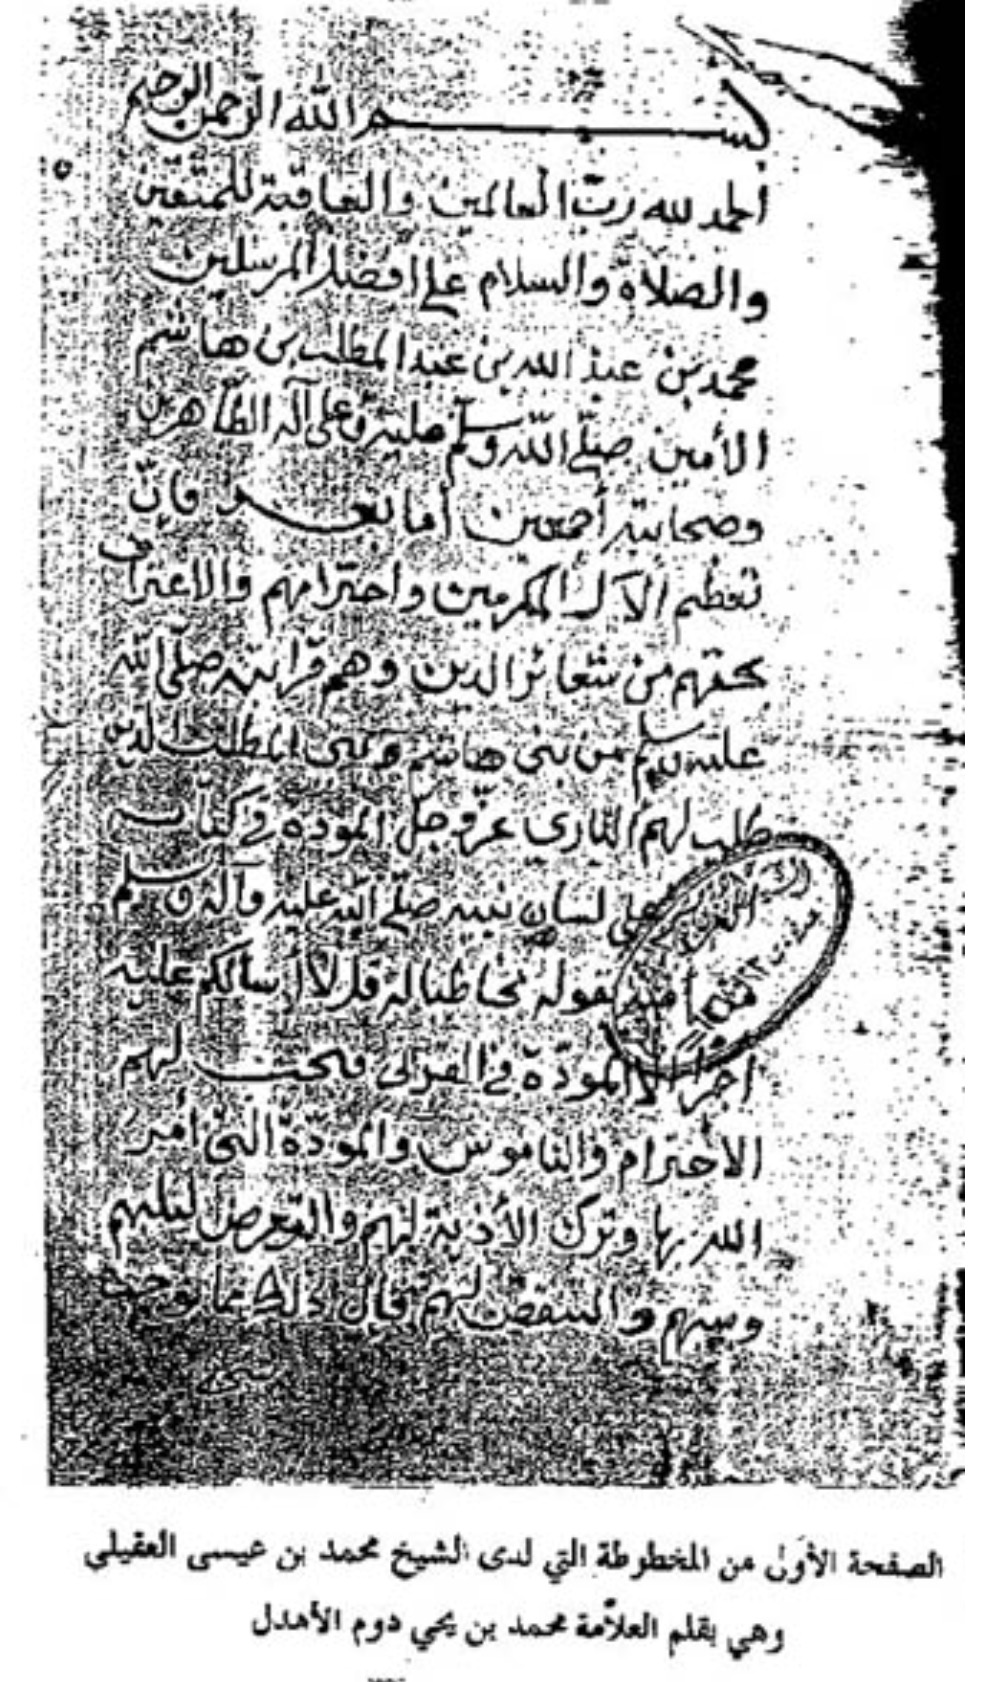 بسم الله الرحمن الرحيم
الحمد لله ربّ العالمين والعاقبة للمتقين
والصلاة والسلام على افضل المرسلين
محمد بن عبد الله بن عبد المطلب بن هاشم
الأمين صلّى الله وسلّم عليه وعلى آله الطاهرين
وصحابته أجمعين أما بعد فإنّ
تعظيم الآل المكرمين واحترامهم والاعتراف
بحقهم من شعائر الدين وهم قرابته صلّى الله
عليه وسلم من بني هاشم وبني المطلب الذين
طلب لهم الباري عزّ وجلّ المودة في كتابه
على لسان نبيه صلّى الله عليه وآله وسلم
بقوله مخاطبا له قل لا أسالكم عليه
اجرا الا المودّة في القربى فيجب لهم
الاحترام والناموس والمودّة التي أمر
الله بها وترك الأذية لهم والتعرض لثلبهم
وسبهم والتنقص لهم فإن ذلك مما يوجب
الصفحة الأولى من المخطوطة التي لدى الشيخ محمد بن عيسى العقيلي
وهي بقلم العلاّمة محمد بن يحي دوم الأهدل